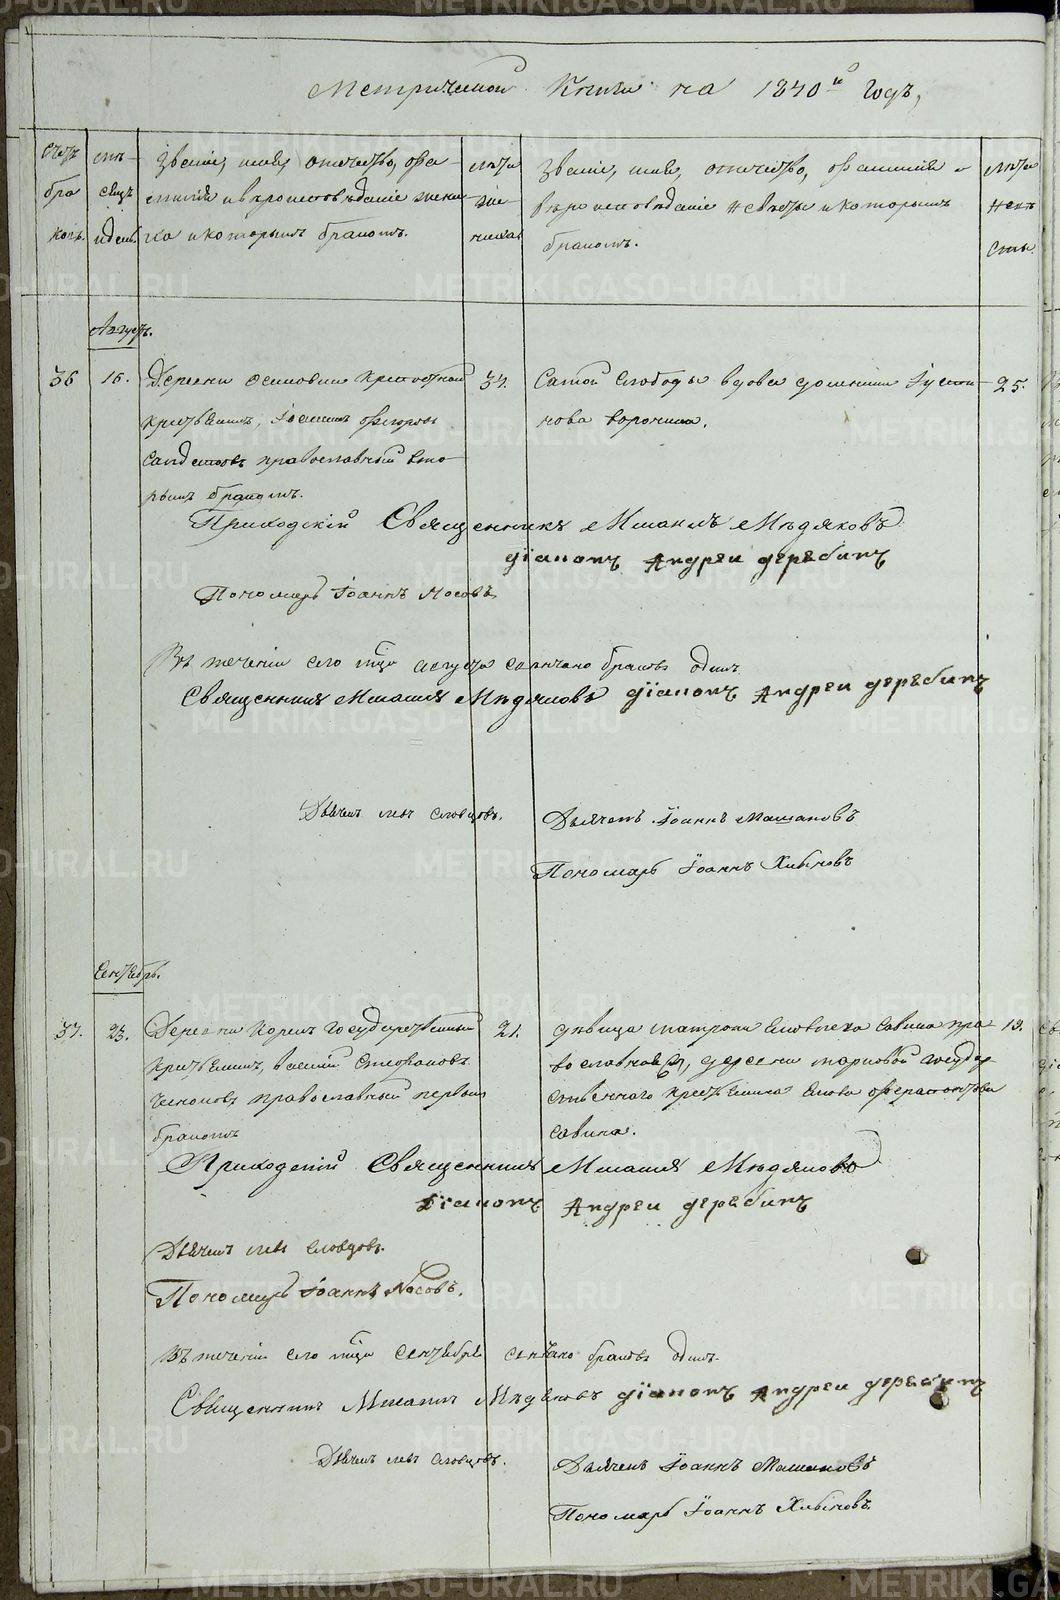 Метрической Книги на 1840й годъ,
Счетъ
бра
ковъ.
мѣ-
сяцъ
и день
Званіе, имя, отчество, фа-
милія и вѣроисповѣданіе жени-
ха и которымъ бракомъ.
лѣта
же
ниха
Званіе, имя, отчество, фамилія и
вѣроисповѣданіе невѣсты и которымъ
бракомъ.
лѣта
невѣ
сты.
Августъ.
36 16. Деревни
крестьянинъ, Іоакимъ Федоровъ
православный вто-
рымъ бракомъ.
37.
Самой Слободы вдова
25.
Приходскій Священникъ Михаилъ Мѣдяковъ
діаконъ Андреи дерябинъ
Пономарь Іоаннъ Носовъ
Въ теченіи сего мца августа вѣнчано бракъ одинъ
Священникъ Михаилъ Мѣдяковъ діаконъ Андреи дерябинъ
Дьячекъ левъ словцовъ.
Дьячекъ Іоаннъ Машановъ
Пономарь Іоаннъ Хлыновъ
Сентябрь.
37. 23. Деревни государственный
крестьянинъ, василій Стефановъ
православный первымъ
бракомъ
21.
дѣвица матрона савина пра
вославная, деревни марковой государ
ственнаго крестьянина
савина.
19.
Приходскій Священникъ Михаилъ Мѣдяковъ
діаконъ Андреи дерябинъ
Дьячекъ левъ словцовъ.
Пономарь Іоаннъ Носовъ.
Въ теченіи сего мца сентября вѣнчано бракъ одинъ.
Священникъ Михаилъ Мѣдяковъ діаконъ Андреи дерябинъ
Дьячекъ левъ словцовъ.
Дьячекъ Іоаннъ Машановъ
Пономарь Іоаннъ Хлыновъ
METRIKI.GASO-URAL.RU